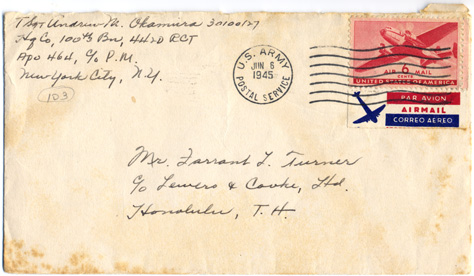 T Sgt Andrew M. Okamura 30100127
Hq Co, 100th Bn, 442D RCT
APO 464, c/o P.M.
New York City, N.Y.
103
U.S. ARMY
JUN 6
1945
POSTAL SERVICE
AIR 6 MAIL
CENTS
UNITED STATES OF AMERICA
PAR AVION
AIRMAIL
CORREO AEREO
Mr. Farrant L. Turner
c/o Lewers & Cooke, Ltd.
Honolulu, T.H.